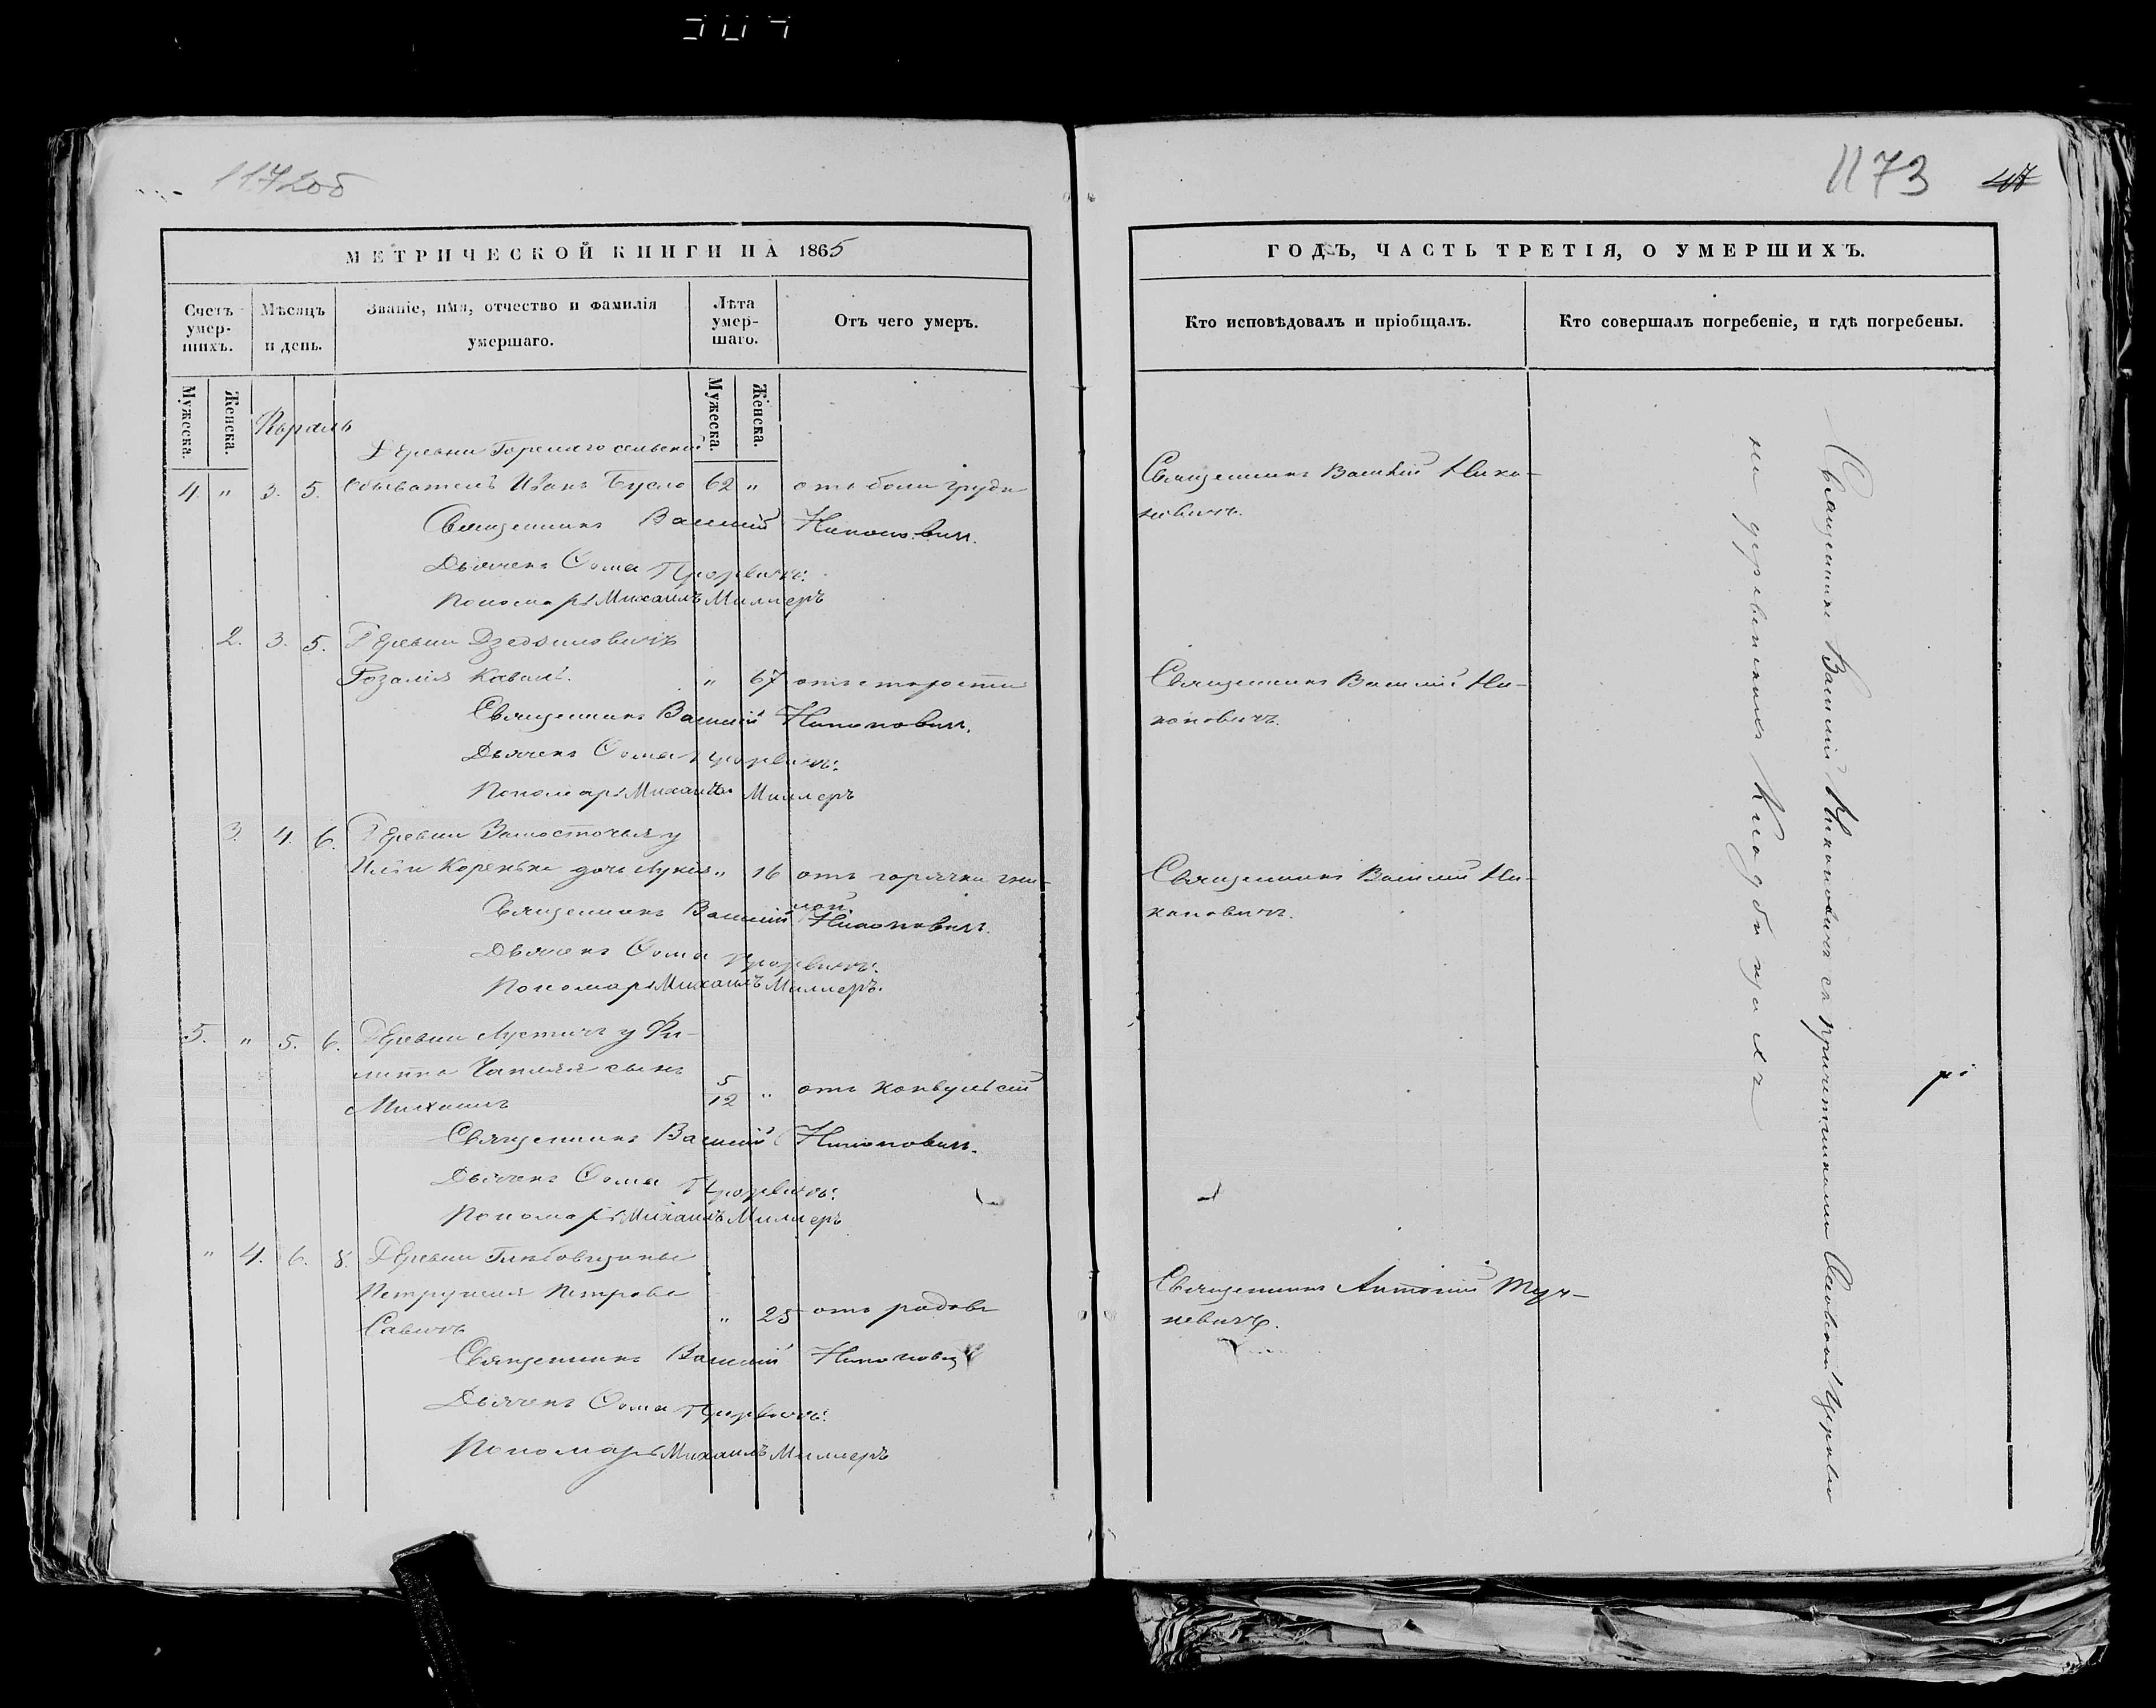 1172об
МЕТРИЧЕСКОЙ КНИГИ НА 1865
Счетъ умер-шихъ.
Мѣсяцъ и день.
Званіе, имя, отчество и фамилія умершаго.
Лѣта умер-шаго.
Отъ чего умеръ.
Мужеска.
Женска.
Мужеска.
Женска.
Деревни
4. " 3. 5. Обыватель Иванъ Бусло 62 " отъ боли груди
Священникъ Василій Никоновичъ.
Дьячекъ Ѳома
Пономарь Михаилъ Миллеръ
2. 3. 5. Деревни
Розалія Коваль. " 67 отъ старости
Священникъ Василій Никоновичъ.
Дьячекъ Ѳома
Пономарь Михаилъ Миллеръ
3. 4. 6. Деревни Замосточья у
Ильи Коренька дочь Лукія " 16 отъ горячки гни-
лой.
Священникъ Василій Никоновичъ.
Дьячекъ Ѳома
Пономарь Михаилъ Миллеръ.
5. " 5. 6. Деревни Лустичъ у Фи-
липпа Чапляя сынъ
Михаилъ 5/12 " отъ конвульсій
Священникъ Василій Никоновичъ.
Дьячекъ Ѳома
Пономарь Михаилъ Миллеръ
" 4. 6. 8. Деревни
Петрунеля Петрова
Савичъ " 25 отъ родовъ
Священникъ Василій Никоновичъ
Дьячекъ Ѳома
Пономарь Михаилъ Миллеръ
1173
47
ГОДЪ, ЧАСТЬ ТРЕТІЯ, О УМЕРШИХЪ.
Кто исповѣдовалъ и пріобщалъ.
Кто совершалъ погребеніе, и гдѣ погребены.
Священникъ Василій Нико-
новичъ.
Священникъ Василій Ни-
коновичъ.
Священникъ Василій Ни-
коновичъ.
Священникъ Антоній
Священникъ Василій Никоновичъ съ причетниками Церкви
на деревенскихъ Кладбищахъ